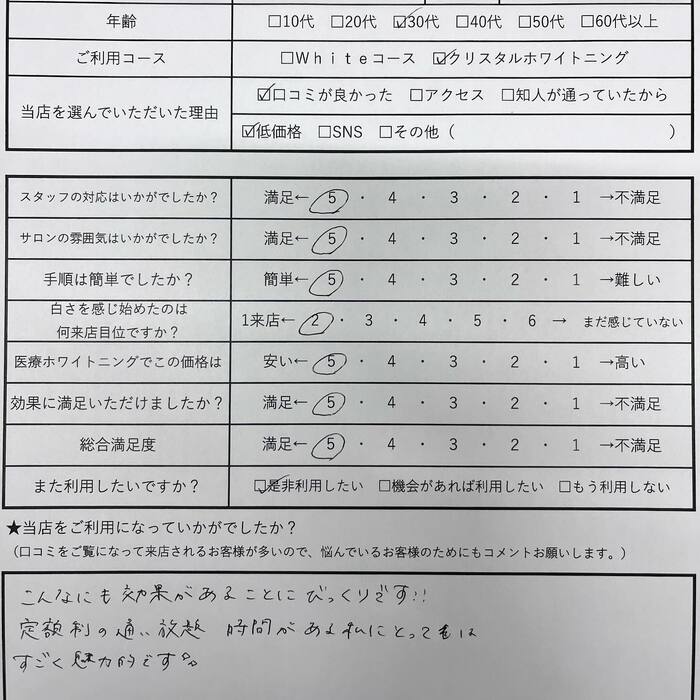 年齢 □10代 □20代 ☑30代 □40代 □50代 □60代以上
ご利用コース □Whiteコース ☑クリスタルホワイトニング
当店を選んでいただいた理由 ☑口コミが良かった □アクセス □知人が通っていたから
☑低価格 □SNS □その他（ ）
スタッフの対応はいかがでしたか？ 満足← 5 ・ 4 ・ 3 ・ 2 ・ 1 →不満足
サロンの雰囲気はいかがでしたか？ 満足← 5 ・ 4 ・ 3 ・ 2 ・ 1 →不満足
手順は簡単でしたか？ 簡単← 5 ・ 4 ・ 3 ・ 2 ・ 1 →難しい
白さを感じ始めたのは
何来店目位ですか？ 1来店← 2 ・ 3 ・ 4 ・ 5 ・ 6 → まだ感じていない
医療ホワイトニングでこの価格は 安い← 5 ・ 4 ・ 3 ・ 2 ・ 1 →高い
効果に満足いただけましたか？ 満足← 5 ・ 4 ・ 3 ・ 2 ・ 1 →不満足
総合満足度 満足← 5 ・ 4 ・ 3 ・ 2 ・ 1 →不満足
また利用したいですか？ ☑是非利用したい □機会があれば利用したい □もう利用しない
★当店をご利用になっていかがでしたか？
（口コミをご覧になって来店されるお客様が多いので、悩んでいるお客様のためにもコメントお願いします。）
こんなにも効果があることにびっくりです!!
定額制の通い放題 時間がある私にとっては
すごく魅力的です。